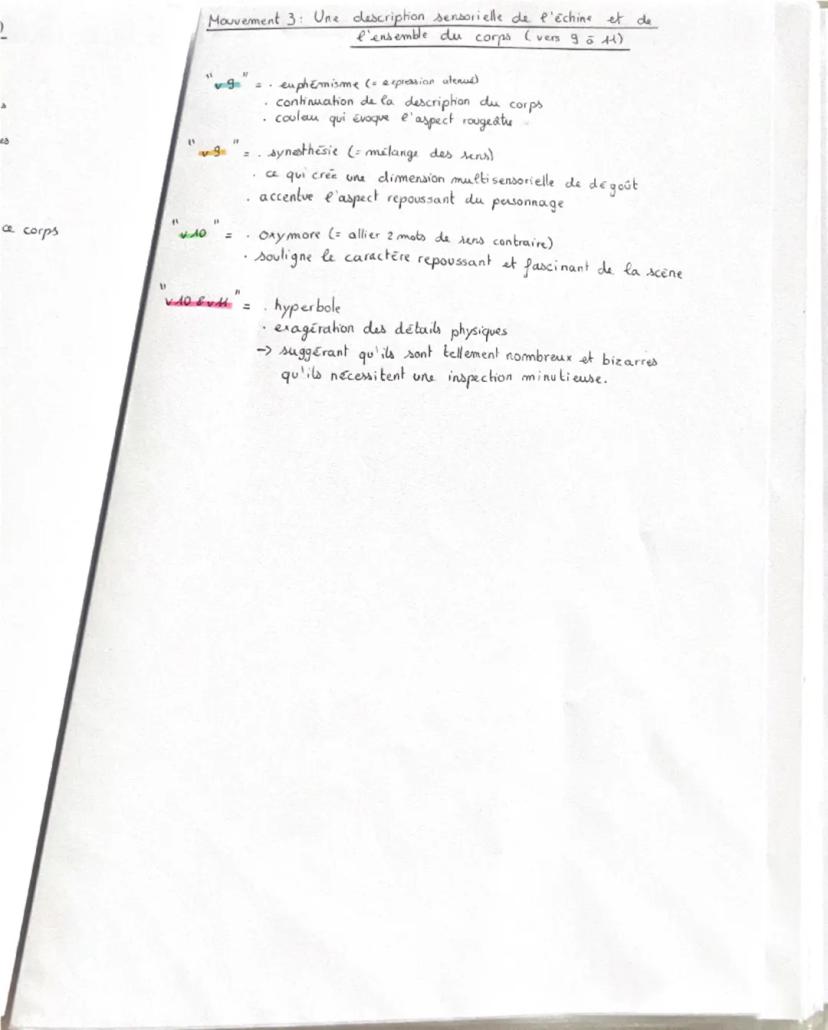 )
s
es
ce corps
Mouvement 3 : Une description sensorielle de l'échine et de
l'ensemble du corps (vers 9 à 11)
"v 9" = . euphémisme (= expression atenué)
. continuation de la description du corps
. couleur qui évoque l'aspect rougeâtre
"v 9" = . synesthésie (= mélange des sens)
. ce qui crée une dimension multisensorielle de dégoût
. accentue l'aspect repoussant du personnage
"v 10" = . oxymore (= allier 2 mots de sens contraire)
. souligne le caractère repoussant et fascinant de la scène
"v 10 & v 11" = . hyperbole
. exagération des détails physiques
-> suggérant qu'ils sont tellement nombreux et bizarres
qu'ils nécessitent une inspection minutieuse.